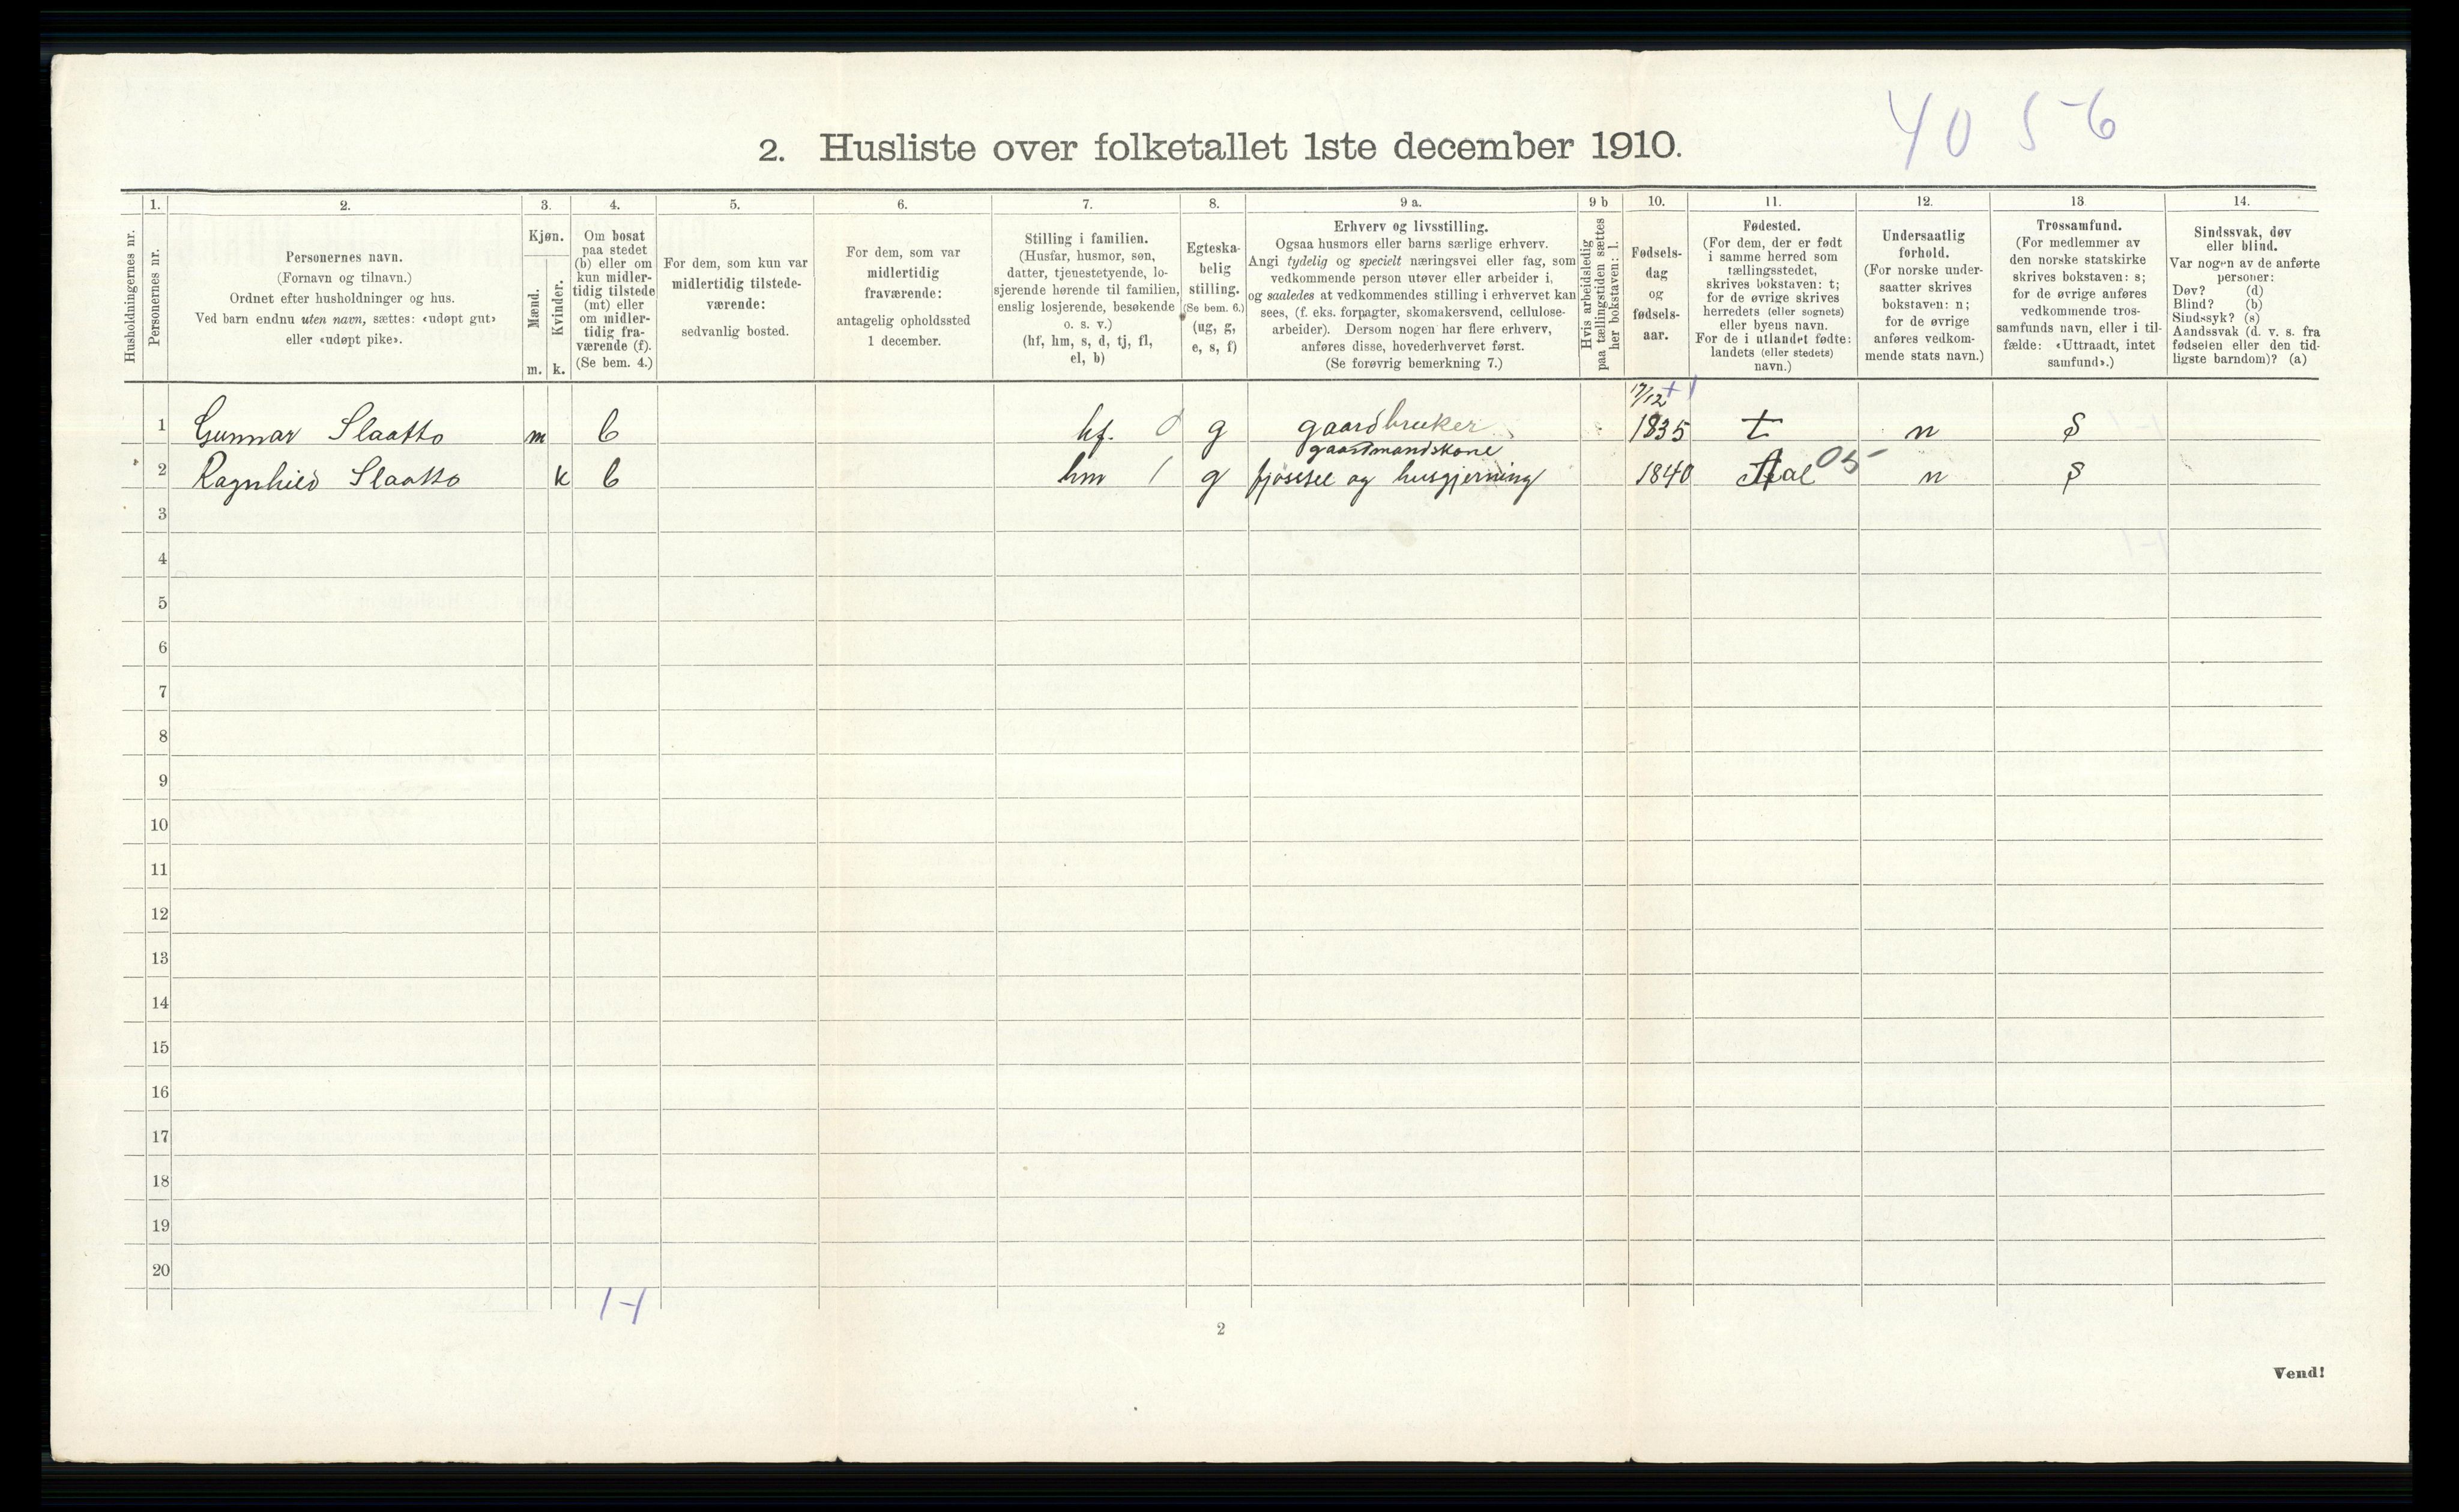 40 5-6
2. Husliste over folketallet 1ste december 1910.
Husholdningernes nr.
1.
Personernes nr.
2.
Personernes navn.
(Fornavn og tilnavn.)
Ordnet efter husholdninger og hus.
Ved barn endnu uten navn, sættes: «udøpt gut»
eller «udøpt pike».
3.
Kjøn.
Mænd.
Kvinder.
m. k.
4.
Om bosat
paa stedet
(b) eller om
kun midler-
tidig tilstede
(mt) eller
om midler-
tidig fra-
værende (f).
(Se bem. 4.)
5.
For dem, som kun var
midlertidig tilstede-
værende:
sedvanlig bosted.
6.
For dem, som var
midlertidig
fraværende:
antagelig opholdssted
1 december.
7.
Stilling i familien.
(Husfar, husmor, søn,
datter, tjenestetyende, lo-
sjerende hørende til familien,
enslig losjerende, besøkende
o. s. v.)
(hf, hm, s, d, tj, fl,
el, b)
8.
Egteska-
belig
stilling.
(Se bem. 6.)
(ug, g,
e, s, f)
9 a.
Erhverv og livsstilling.
Ogsaa husmors eller barns særlige erhverv.
Angi tydelig og specielt næringsvei eller fag, som
vedkommende person utøver eller arbeider i,
og saaledes at vedkommendes stilling i erhvervet kan
sees, (f. eks. forpagter, skomakersvend, cellulose-
arbeider). Dersom nogen har flere erhverv,
anføres disse, hovederhvervet først.
(Se forøvrig bemerkning 7.)
9 b
Hvis arbeidsledig
paa tællingstiden sættes
her bokstaven: l.
10.
Fødsels-
dag
og
fødsels-
aar.
11.
Fødested.
(For dem, der er født
i samme herred som
tællingsstedet,
skrives bokstaven: t;
for de øvrige skrives
herredets (eller sognets)
eller byens navn.
For de i utlandet fødte:
landets (eller stedets)
navn.)
12.
Undersaatlig
forhold.
(For norske under-
saatter skrives
bokstaven: n;
for de øvrige
anføres vedkom-
mende stats navn.)
13
Trossamfund.
(For medlemmer av
den norske statskirke
skrives bokstaven: s;
for de øvrige anføres
vedkommende tros-
samfunds navn, eller i til-
fælde: «Uttraadt, intet
samfund».)
14.
Sindssvak, døv
eller blind.
Var nogen av de anførte
personer:
Døv? (d)
Blind? (b)
Sindssyk? (s)
Aandssvak (d. v. s. fra
fødselen eller den tid-
ligste barndom)? (a)
17/12 + 1
1 Gunnar Slaatto m b hf. 0 g gaardbruker 1835 t n S
gaardmandskone
2 Ragnhild Slaatto k b hm 1 g fjøsstel og husgjerning 1840 Aal 05 n S
3
4
5
6
7
8
9
10
11
12
13
14
15
16
17
18
19
20
1-1
2
Vend!